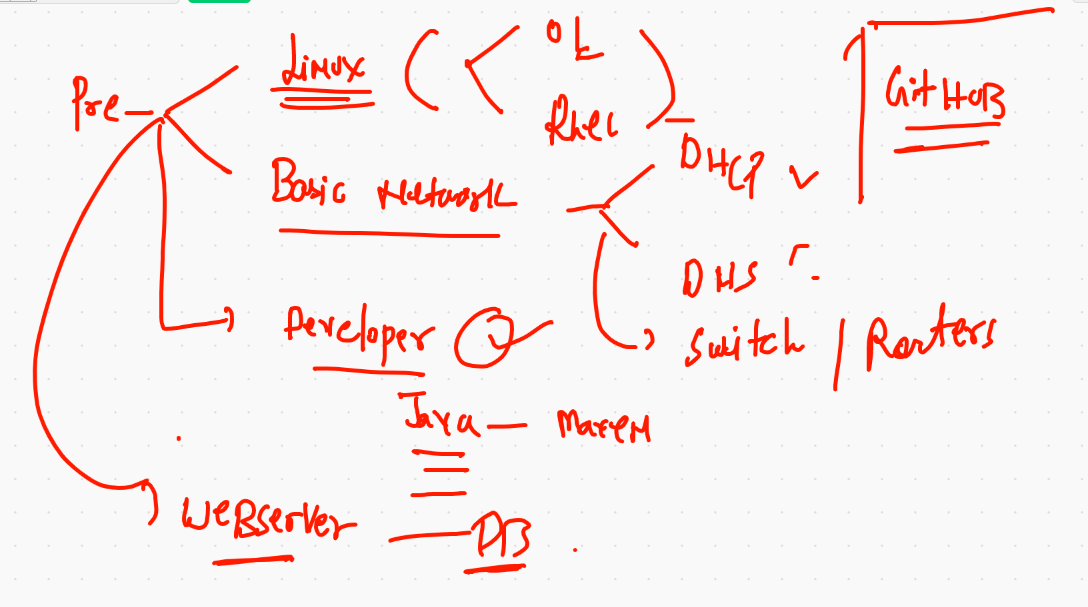 Pre
Linux
OL
Rhel
GitHUB
Basic Network
DHCP
DNS
Switch / Routers
Developer
Java - Maven
WeBserver
DB